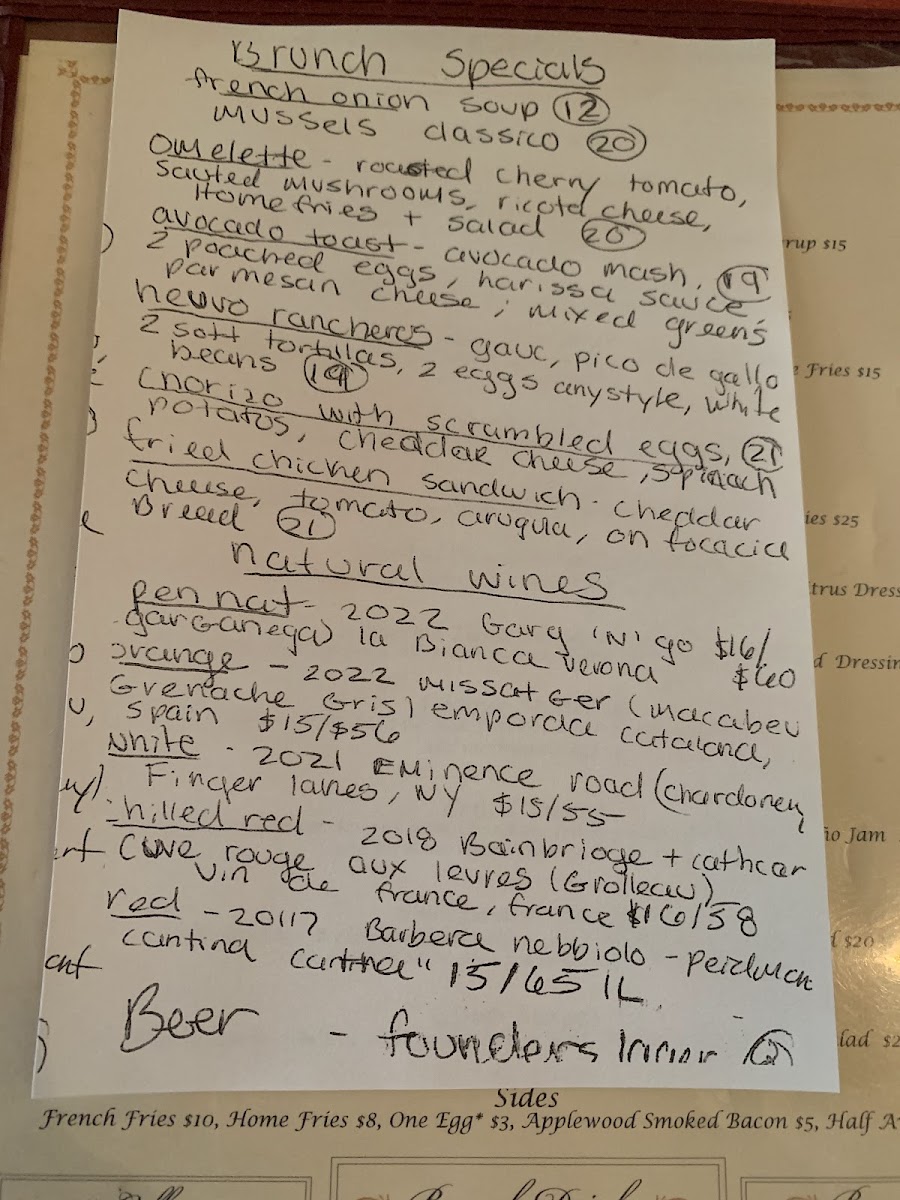 Brunch Specials
french onion soup (12)
mussels classico (20)
Omelette - roasted cherry tomato,
sauted mushrooms, ricotd cheese,
Home fries + salad (20)
avocado toast - avocado mash, (19)
2 poached eggs, harissa sauce,
parmesan cheese, mixed greens
heuvo rancheros - gauc, pico de gallo
2 soft tortillas, 2 eggs anystyle, white
beans (19)
Chorizo with scrambled eggs, (21)
potatos, cheddar cheese, spinach
fried chicken sandwich - cheddar
cheese, tomato, arugula, on focacice
Bread (21)
natural wines
pen nat - 2022 Garg 'N' go $16/
garganega) la Bianca verona $60
orange - 2022 missatger (macabeu
Grenache Gris) emporda catalana,
Spain $15/$56
White - 2021 Eminence road (chardoney
Finger lakes, NY $15/55
chilled red - 2018 Bainbridge + cathcar
Cuve rouge aux levres (Grolleau)
vin de france, france $16/58
red - 20117 Barbera nebbiolo -
cantina 15/65 1L
Beer - founders
rup $15
Fries $15
ies $25
trus Dress
d Dressin
io Jam
$20
lad $2
Sides
French Fries $10, Home Fries $8, One Egg* $3, Applewood Smoked Bacon $5, Half A